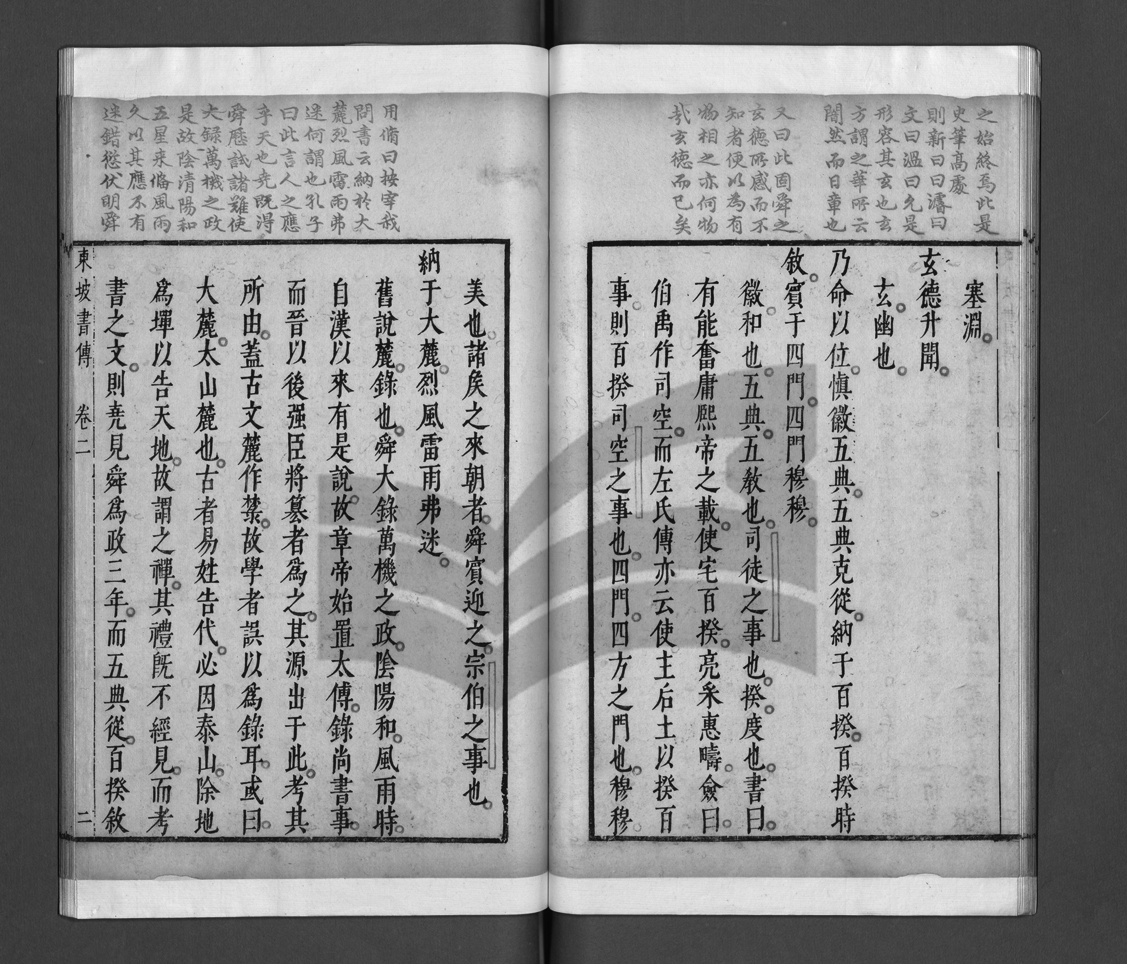 之始終焉此是
史筆高處
則新曰曰濬曰
文曰溫曰允是
形容其玄也玄
方謂之華所云
闇然而日章也
又曰此固舜之
玄德所感而不
知者便以為有
物相之亦何物
哉玄德而已矣
塞淵
玄德升聞
玄幽也
乃命以位慎徽五典五典克從納于百揆百揆時
敘賓于四門四門穆穆
徽和也五典五敎也司徒之事也揆度也書曰
有能奮庸熙帝之載使宅百揆亮采惠疇僉曰
伯禹作司空而左氏傳亦云使主后土以揆百
事則百揆司空之事也四門四方之門也穆穆
用脩曰按宰我
問書云納於大
麓烈風雷雨弗
迷何謂也孔子
曰此言人之應
乎天也堯既得
舜歷試諸難使
大錄萬機之政
是故陰清陽和
五星來僃風雨
久以其應不有
迷錯愆伏明舜
美也諸矦之來朝者舜賓迎之宗伯之事也
納于大麓烈風雷雨弗迷
舊說麓錄也舜大錄萬機之政陰陽和風雨時
自漢以來有是說故章帝始置太傅錄尚書事
而晉以後強臣將篡者爲之其源出于此考其
所由蓋古文麓作禁故學者誤以爲錄耳或曰
大麓太山麓也古者易姓告代必因泰山除地
爲墠以告天地故謂之禪其禮旣不經見而考
書之文則堯見舜爲政三年而五典從百揆敘
東坡書傳 卷二 二